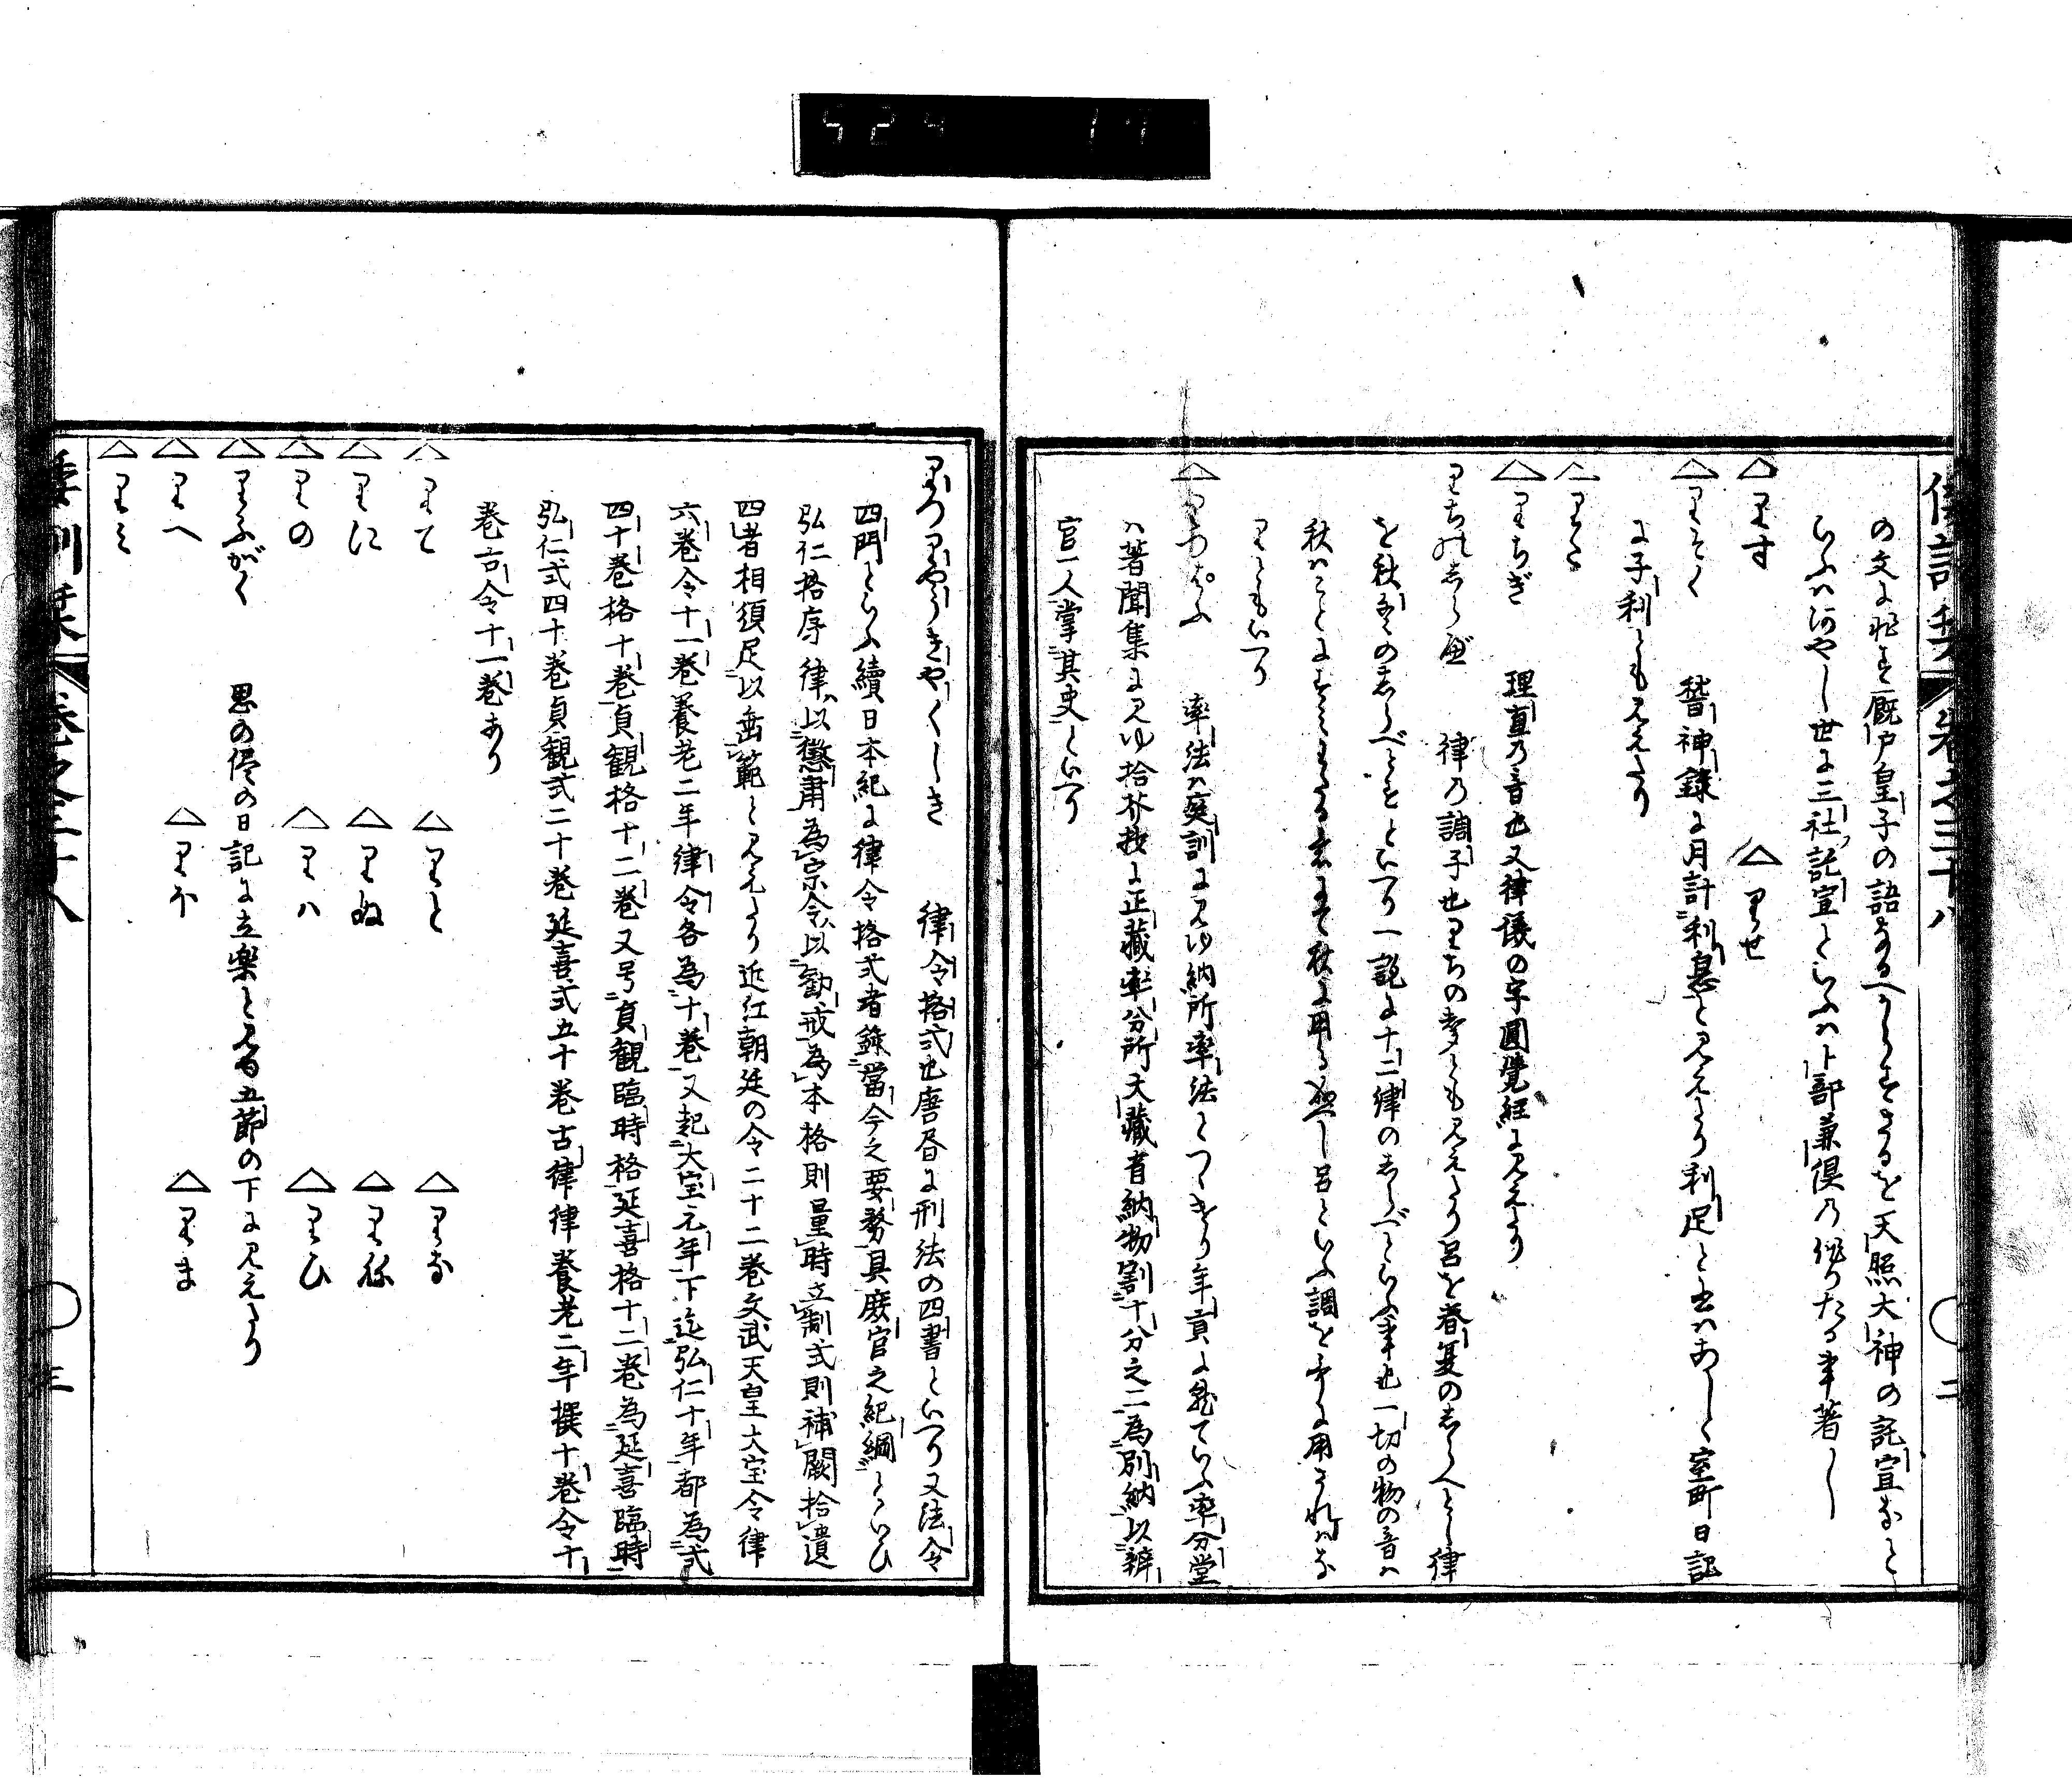 の文に非す厩戸皇子の語なるへからすさるを天照大神の託宣なと
いふハ何やし世に三社託宣といふハ卜部兼倶の作りたる事著し
△りす △りせ
△りそく 稽神録に月計利息と見えたり利足と書ハあしく室町日記
に子利ともみえたり
△りた
△りちぎ 理直の音也又律議の字圓覺経に見えたり
りちのしらべ 律の調子也りちのこゑとも見えたり呂を春夏のしらへとし律
を秋冬のしらべとすといへり一説に十二律のしらべといふ事也一切の物の音ハ
秋ハことにすミまさる也さて秋に用る
りともいへり
△りつはふ 率法ハ庭訓に見ゆ納所率法とつゝきたり年貢に就ていふ率分堂
ハ著聞集に見ゆ拾芥抄に正藏率分所大藏省納物割十分之二為別納以辨
官一人掌其史といへり
倭訓栞 巻之三十八 二
りつりやうきやくしき 律令格式也唐昼に刑法の四書といへり又法令
四門といふ續日本紀に律令格式者録當今之要務具廢官之紀綱といひ
弘仁格序律以懲肅為宗令以勸戒為本格則量時立制式則補闕拾遺
四者相須足以垂範と見えたり近江朝廷の令二十二巻文武天皇大宝令律
六巻令十一巻養老二年律令各為十巻又起大宝元年下迄弘仁十年都為式
四十巻格十巻貞観格十二巻又号貞観臨時格延喜格十二巻為延喜臨時
弘仁式四十巻貞観式二十巻延喜式五十巻古律律養老二年撰十巻令十
巻古令十一巻あり
△りて △りと △りな
△りに △りぬ △りね
△りの △りハ △りひ
△りふがく 恩の侭の日記に立楽と見ゆ五節の下に見えたり
△りへ △りほ △りま
△りミ
倭訓栞 巻之三十八 三
524 17